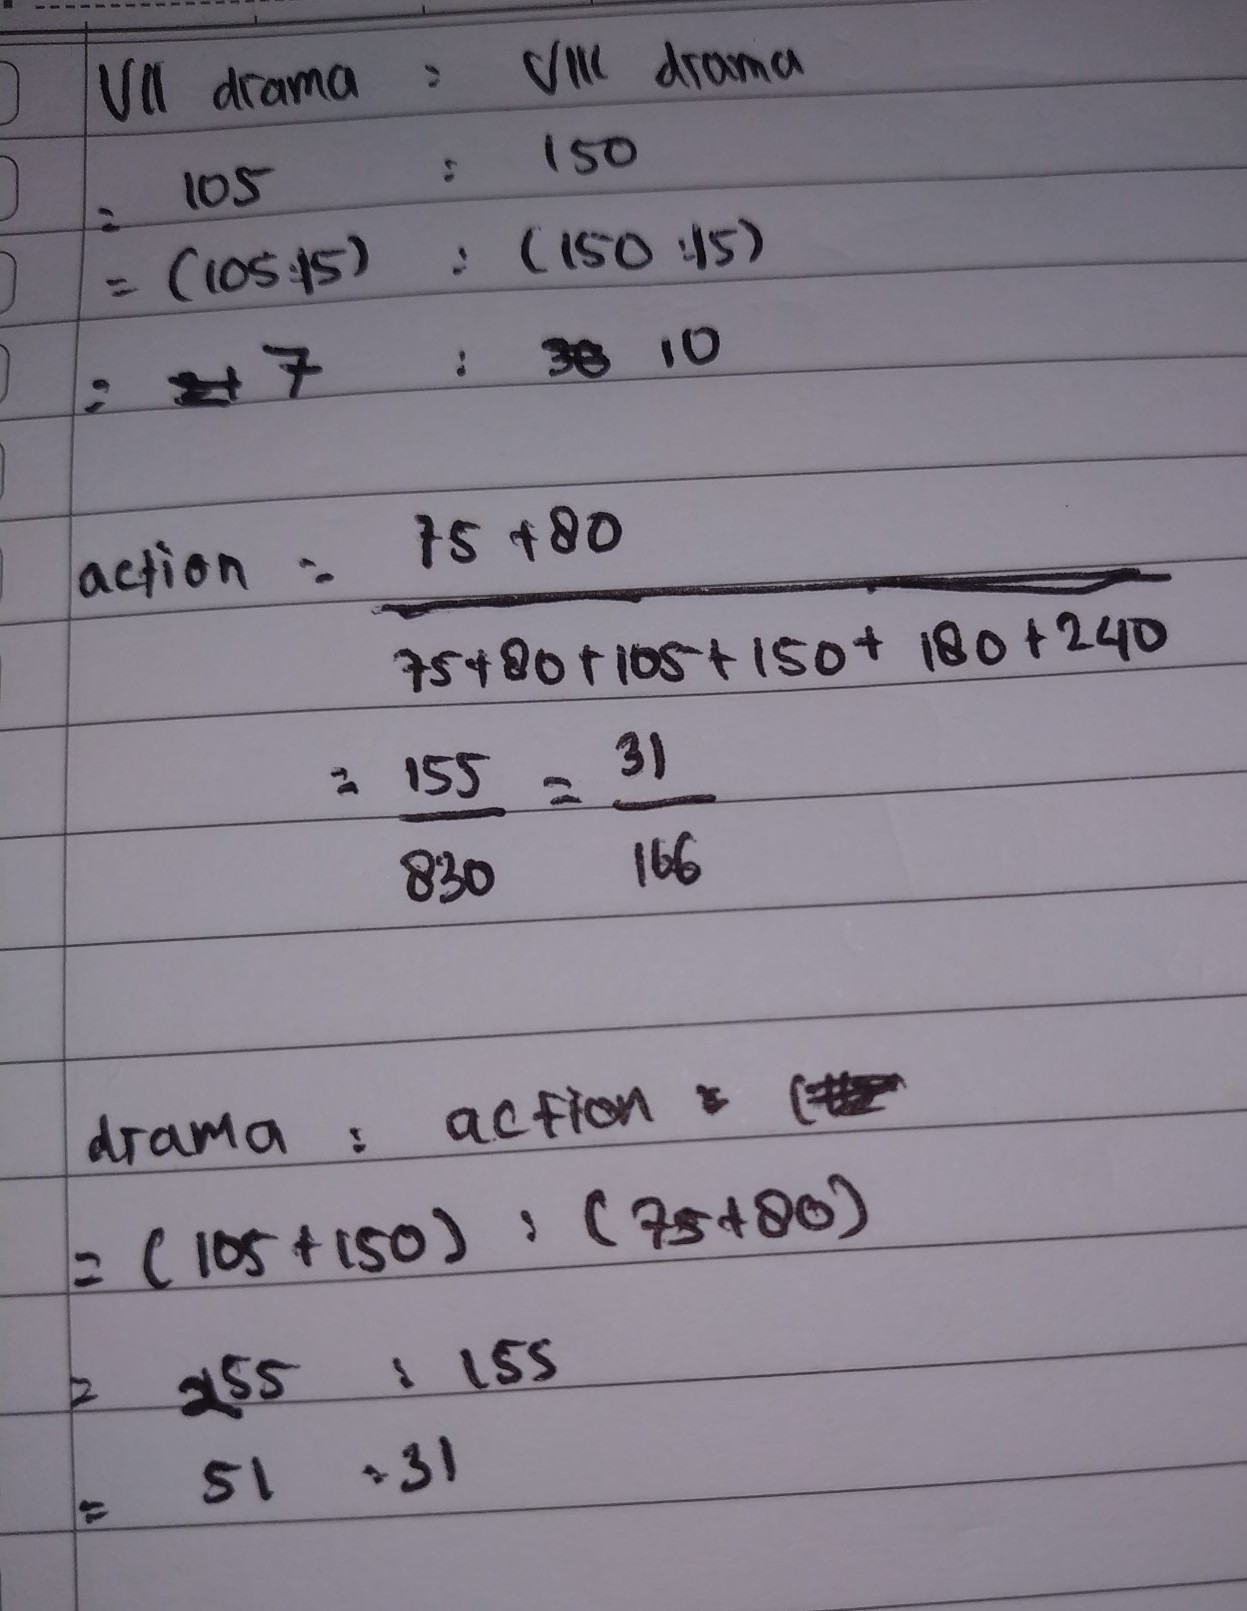 VII drama : VIII drama
= 105 : 150
= (105:15) : (150:15)
= 7 : 10
action = 75 + 80
75+80+105+150+ 180+240
= 155 = 31
830 166
drama : action = (
= (105+150) : (75+80)
= 255 : 155
= 51 : 31